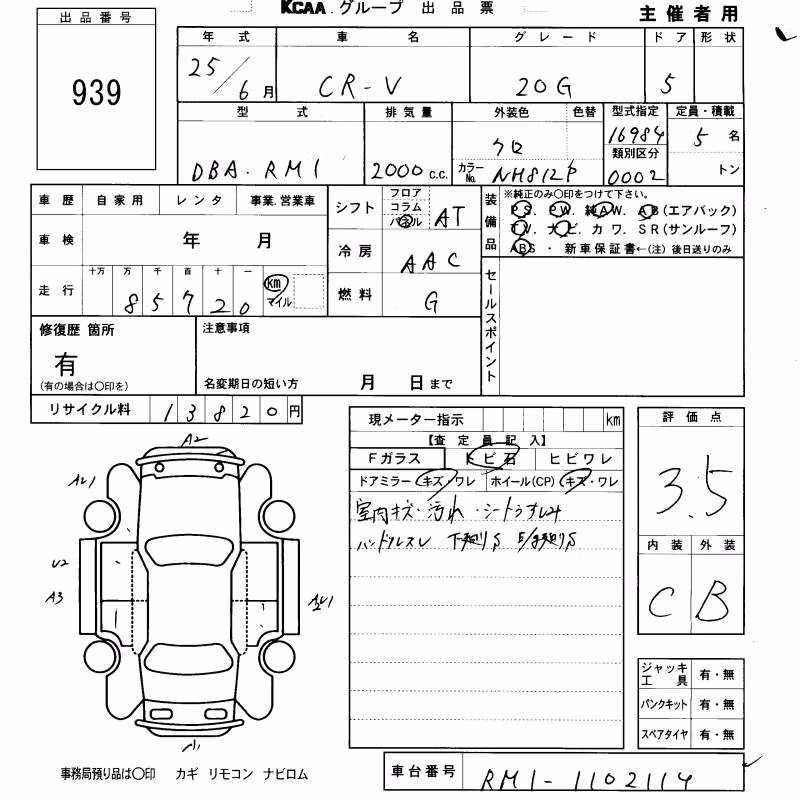 出品番号
KCAA.グループ 出品票
主催者用
939
年式 車名 グレード ドア 形状
25/6月 CR-V 20G 5
型式 排気量 外装色 色替 型式指定 定員・積載
DBA-RM1 2000 c.c. クロ 16984 5名
カラーNo. NH812P 類別区分 0002 トン
車歴 自家用 レンタ 事業.営業車
シフト フロア コラム パネル AT
装備品 ※純正のみ〇印をつけて下さい。
PS. PW. 純AW. AB(エアバック)
TV. ナビ. カワ. SR(サンルーフ)
ABS ・ 新車保証書←(注) 後日送りのみ
車検 年 月
冷房 AAC
走行 十万 万 千 百 十 一 km マイル
85720
燃料 G
セールスポイント
修復歴 箇所
有
(有の場合は〇印を)
注意事項
名変期日の短い方 月 日まで
リサイクル料 13820円
現メーター指示 km
評価点
3.5
【査定員記入】
Fガラス トビ石 ヒビワレ
ドアミラー キズ・ワレ ホイール(CP) キズ・ワレ
室内キズ・汚れ・シートうすしみ
ハンドルスレ 下廻りS E/G廻りS
内装 外装
C B
A2
AU1
U2
A3
A1
ジャッキ工具 有・無
パンクキット 有・無
スペアタイヤ 有・無
事務局預り品は〇印 カギ リモコン ナビロム
車台番号 RM1-1102114